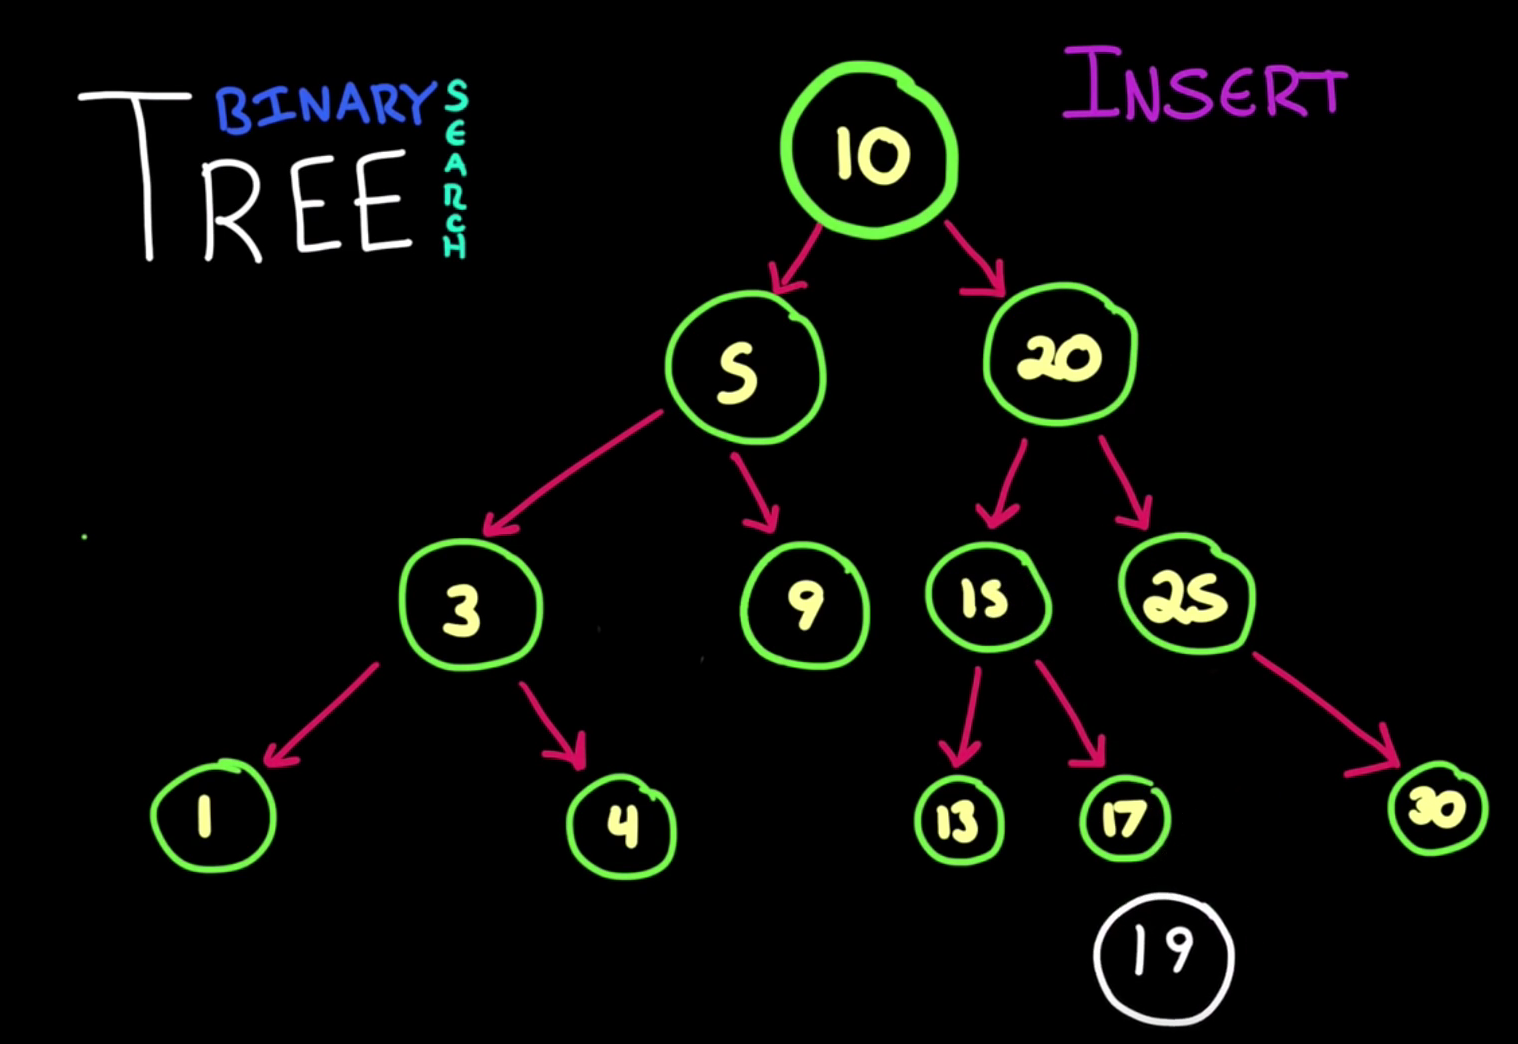 BINARY SEARCH
TREE
INSERT
10
5 20
3 9 15 25
1 4 13 17 30
19